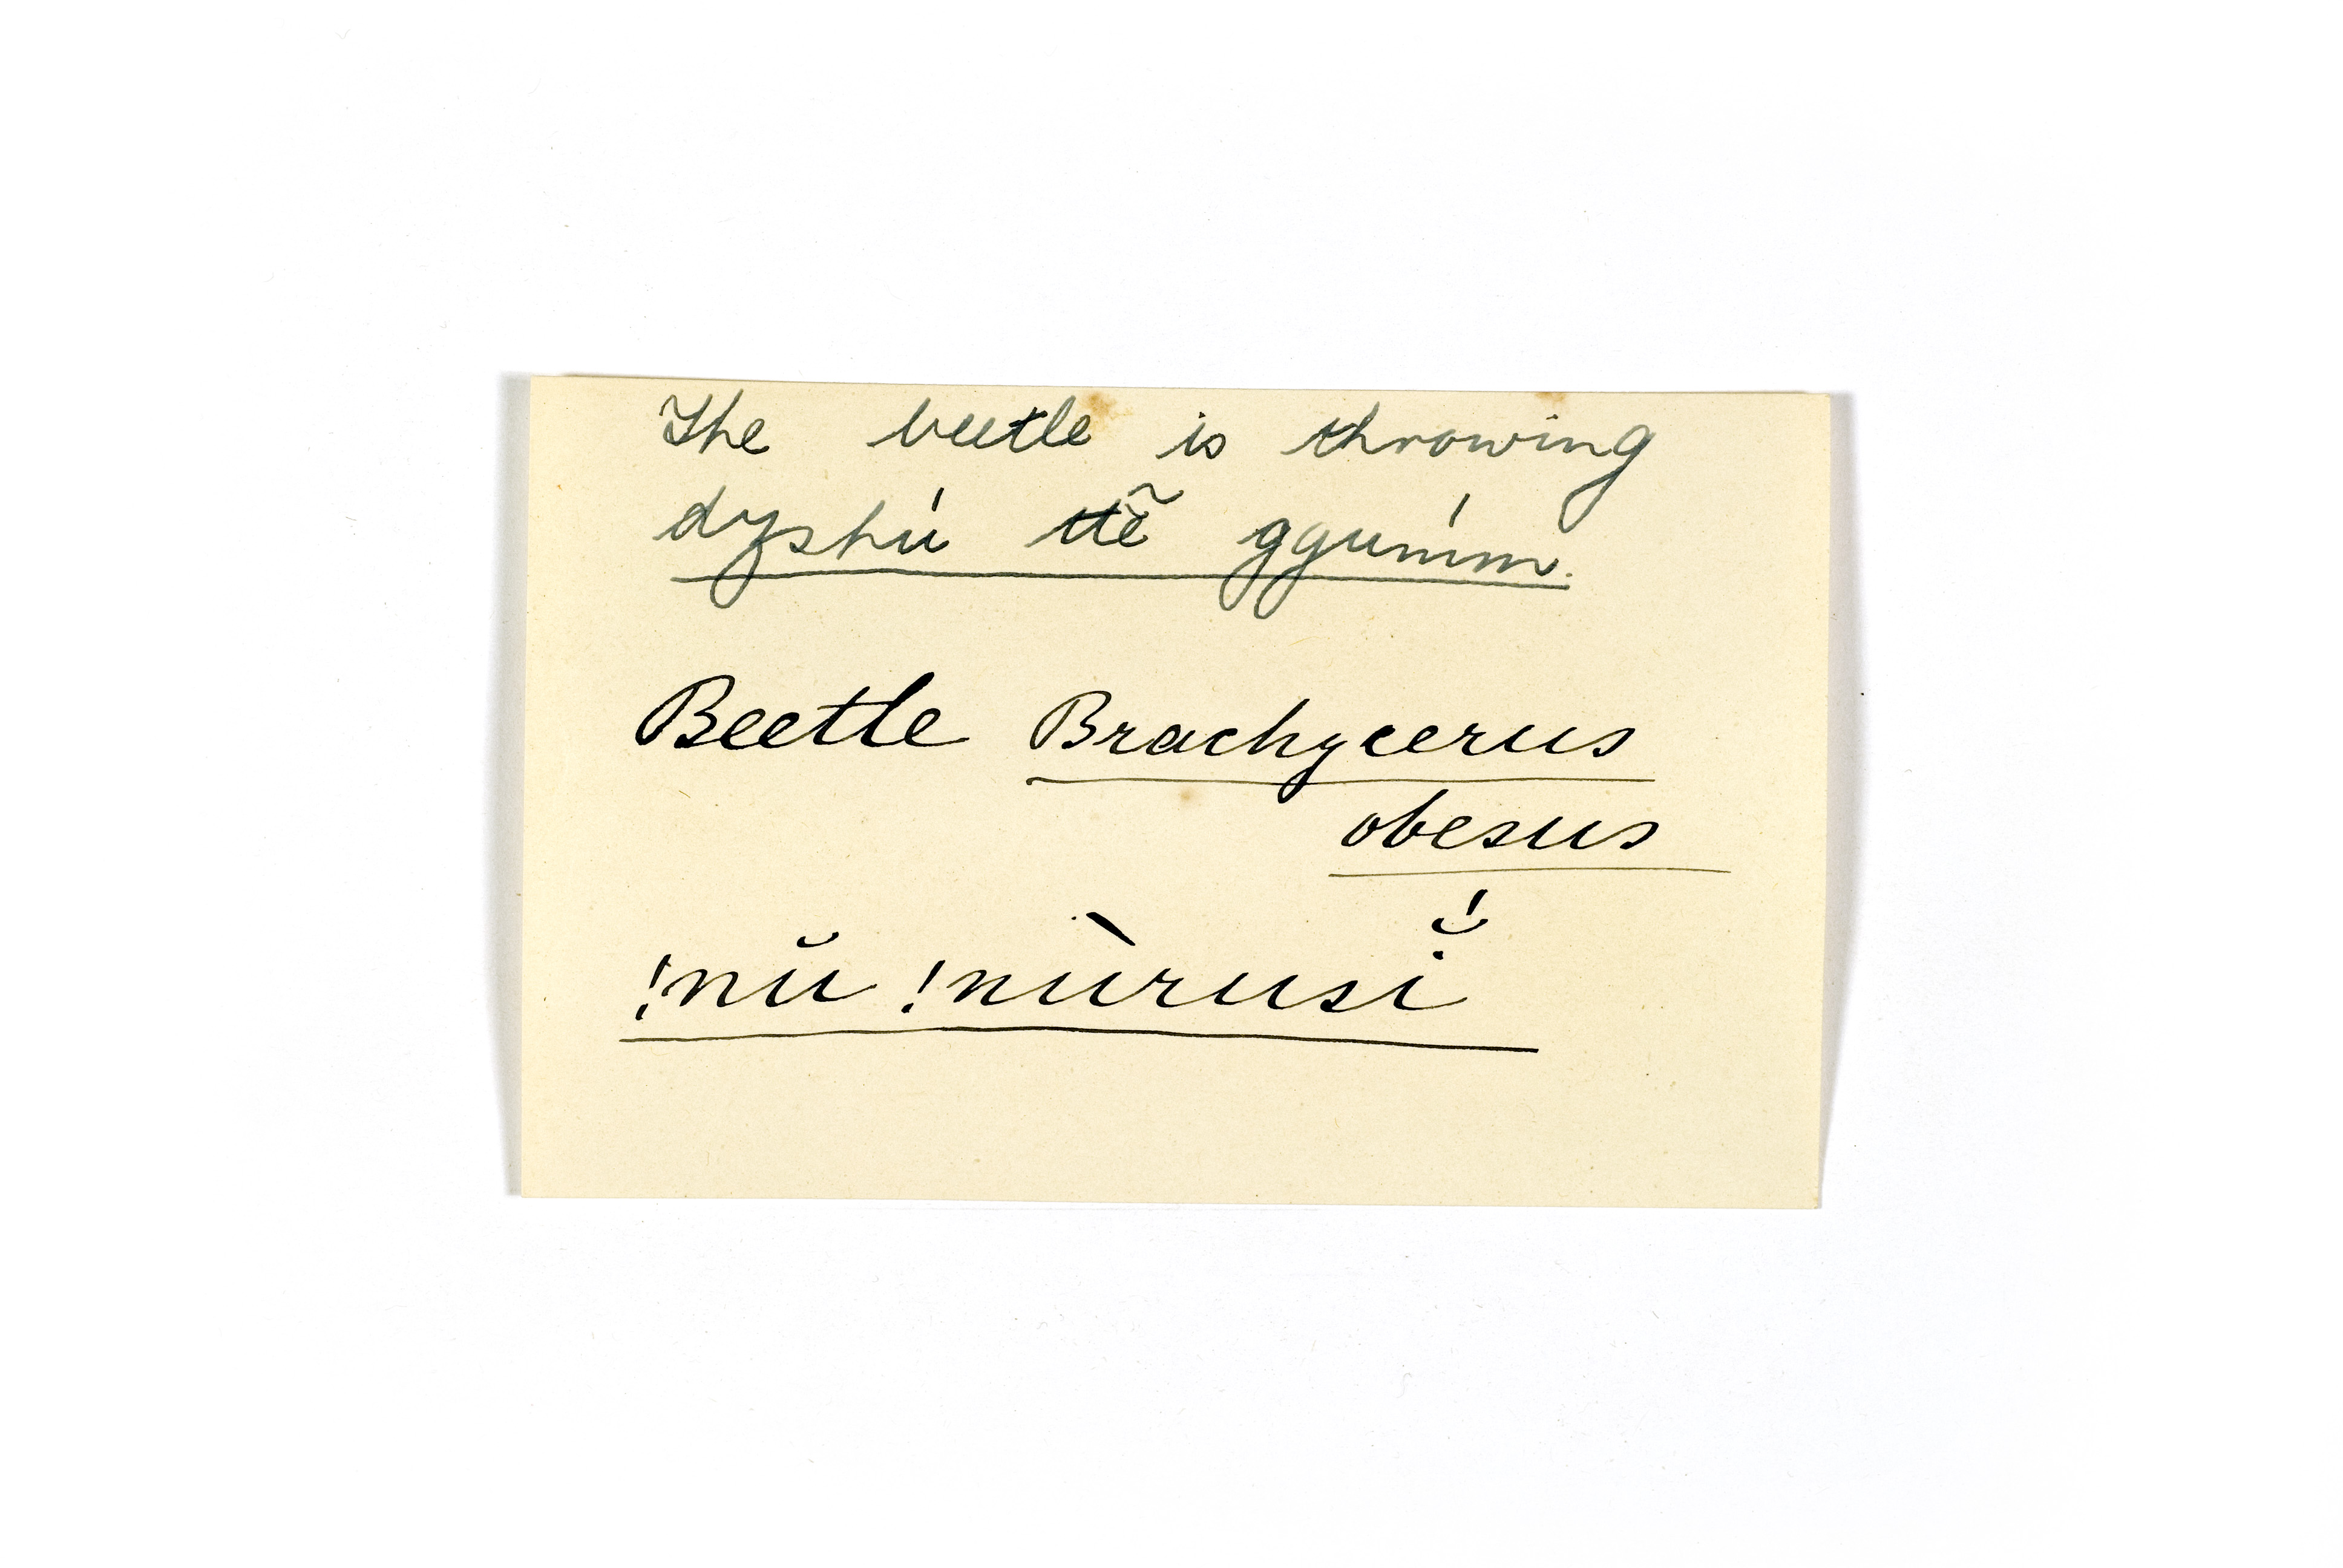 The beetle is throwing
dzshú ttẽ ggumm.
Beetle Brachycerus
obesus
!nŭ !nùrusĭ́